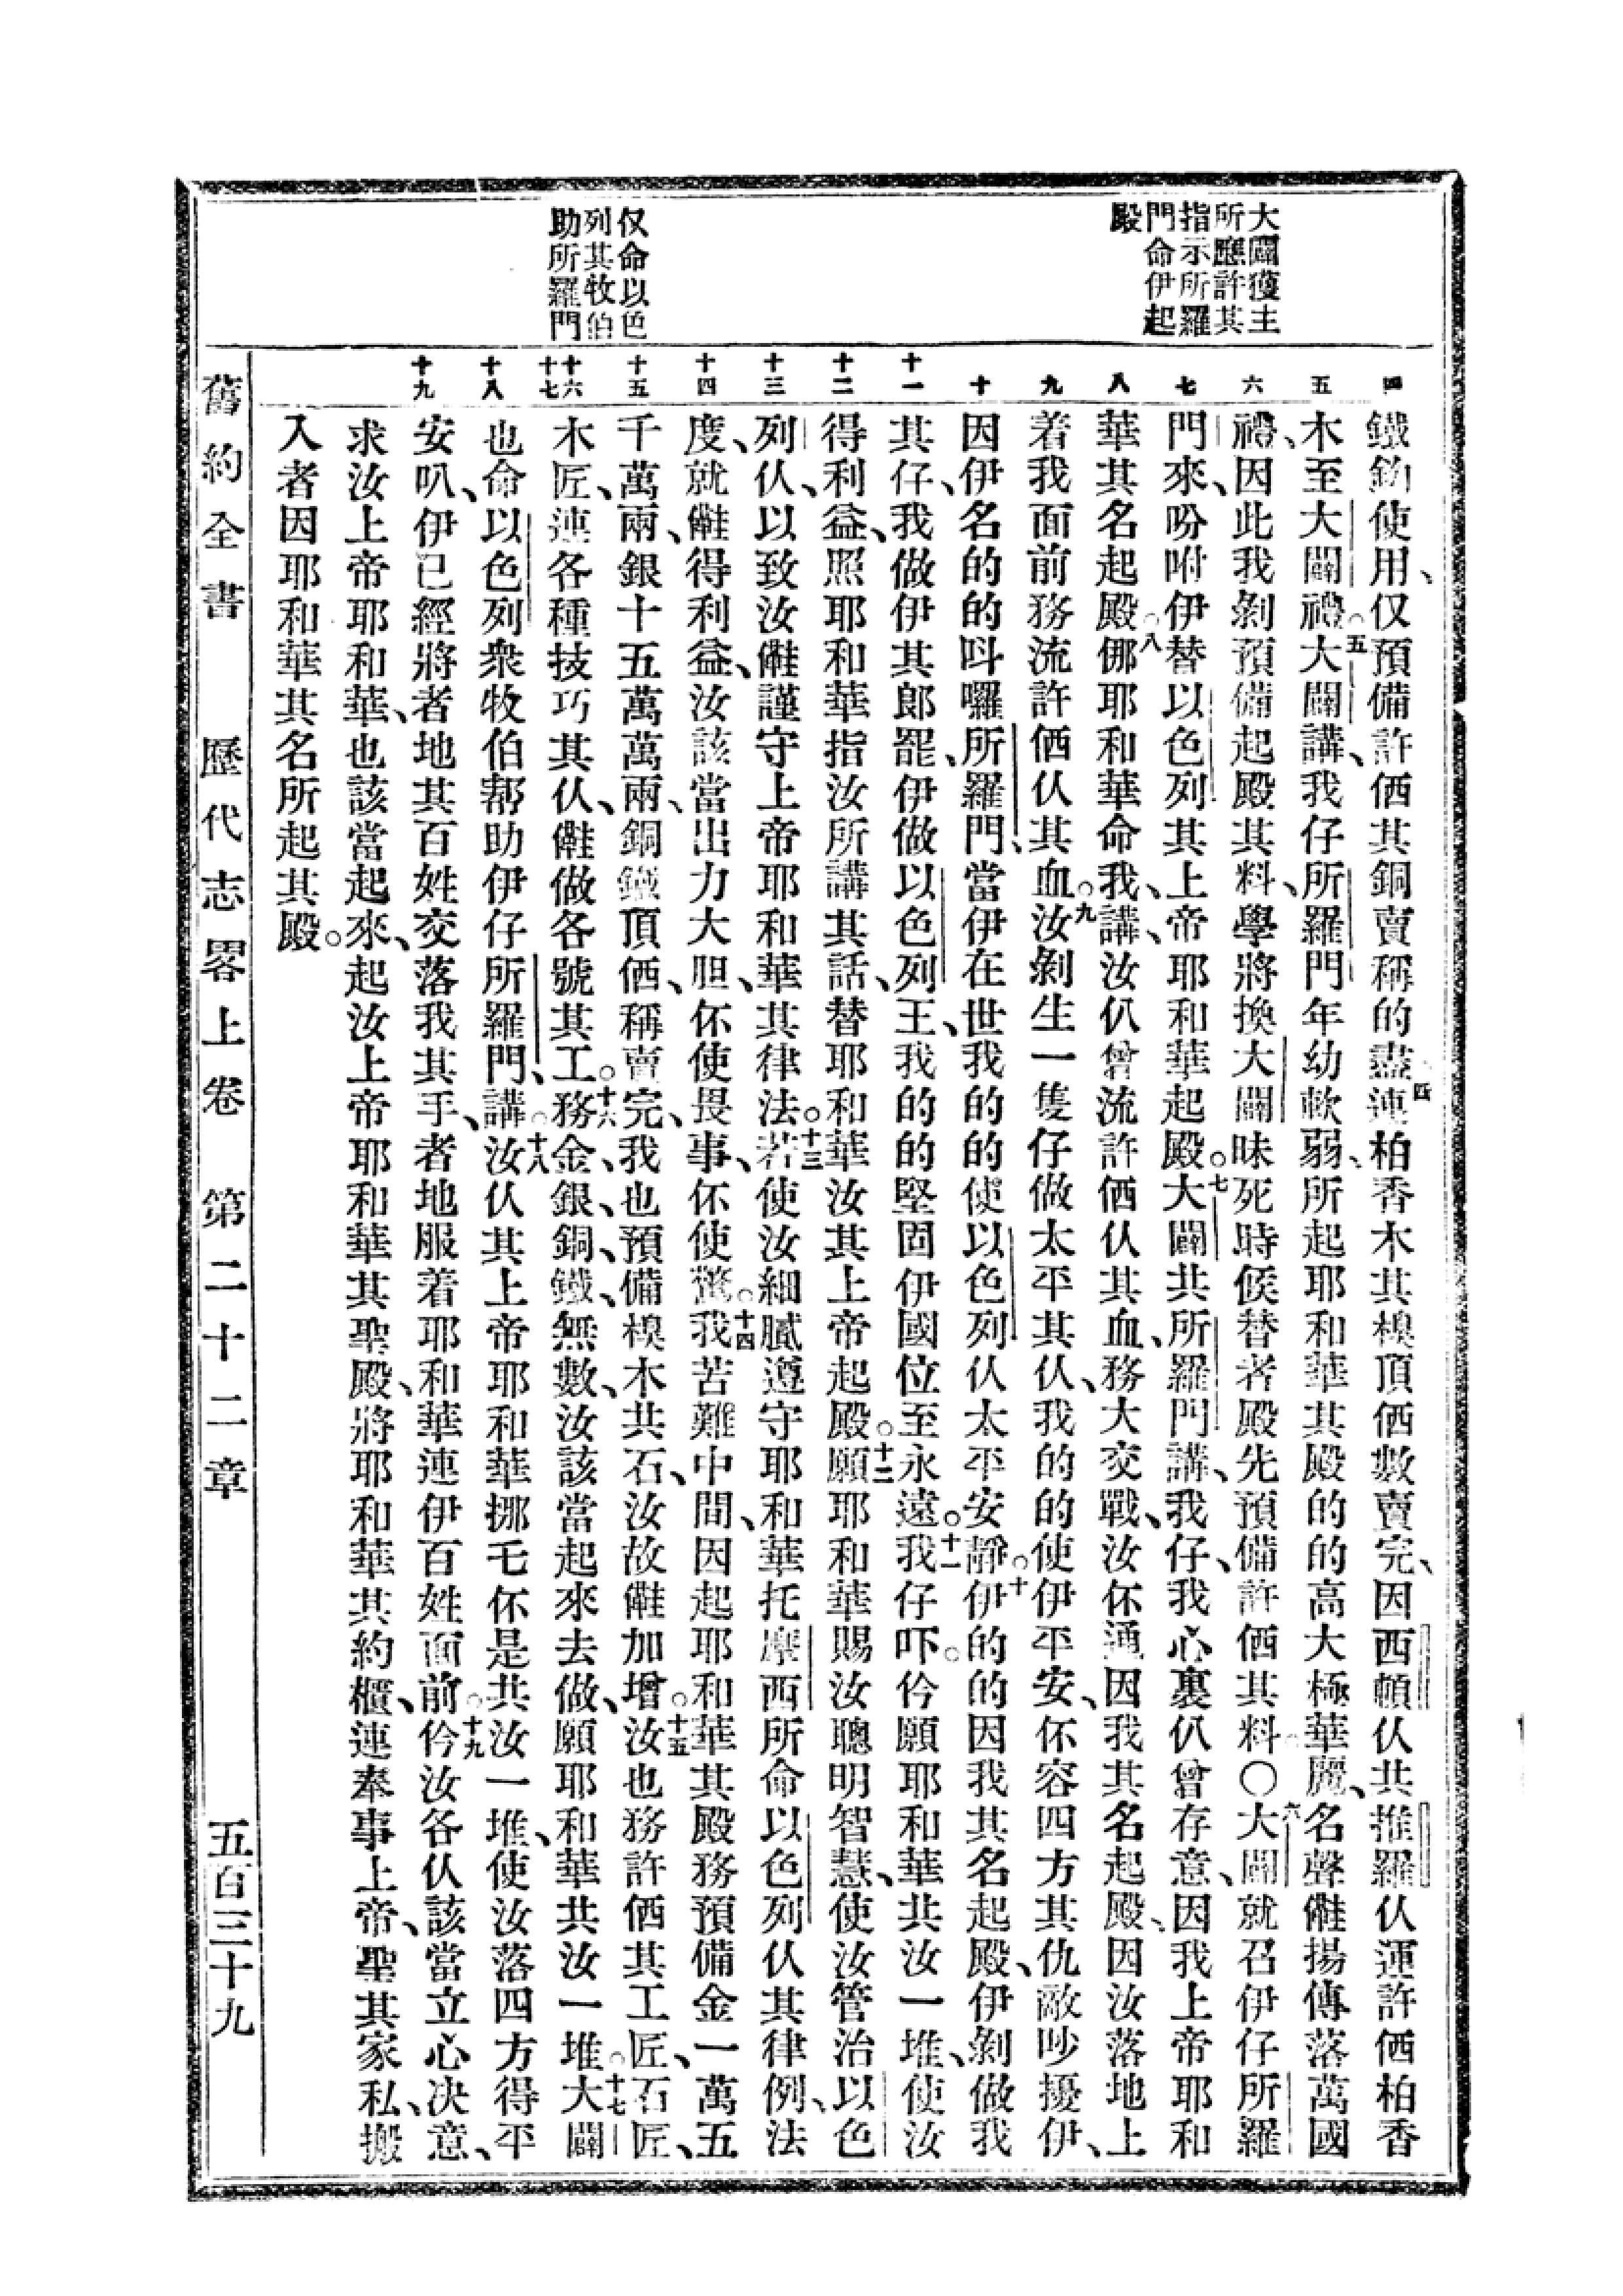 大闢獲主
所應許其
指示所羅
門命伊起
殿
仅命以色
列其牧伯
助所羅門
四 五 六 七 八 九 十 十一 十二 十三 十四 十五 十六 十七 十八 十九
鐵鈎使用、仅預備許価其銅賣稱的盡四連柏香木其樑頂価數賣完、因西頓仈共推羅仈運許価柏香
木至大闢禮。五大闢講、我仔所羅門年幼軟弱、所起耶和華其殿的的高大極華麗、名聲儺揚傳落萬國
禮、因此我剝預備起殿其料、學將換大闢昧死時候替者殿先預備許価其料。〇六大闢就召伊仔所羅
門來、吩咐伊替以色列其上帝耶和華起殿。七大闢共所羅門講、我仔、我心裏仈曾存意、因我上帝耶和
華其名起殿。八㑚耶和華命我、講、汝仈曾流許価仈其血、務大交戰、汝伓通因我其名起殿、因汝落地上
着我面前務流許価仈其血。九汝剝生一隻仔做太平其仈、我的的使伊平安、伓容四方其仇敵吵擾伊、
因伊名的的呌囉所羅門、當伊在世我的的使以色列仈太平安靜。十伊的的因我其名起殿、伊剝做我
其仔、我做伊其郎罷、伊做以色列王、我的的堅固伊國位至永遠。十一我仔吓。仱願耶和華共汝一堆、使汝
得利益、照耶和華指汝所講其話、替耶和華汝其上帝起殿。十二願耶和華賜汝聰明智慧、使汝管治以色
列仈、以致汝儺謹守上帝耶和華其律法。十三若使汝細膩遵守耶和華托摩西所命以色列仈其律例、法
度、就儺得利益、汝該當出力大胆、伓使畏事、伓使驚。十四我苦難中間、因起耶和華其殿務預備金一萬五
千萬兩、銀十五萬萬兩、銅鐵頂価、稱賣完、我也預備樑木共石、汝故儺加增。十五汝也務許価其工匠、石匠、
木匠、連各種技巧其仈、儺做各號其工。十六務金、銀、銅、鐵、無數、汝該當起來去做、願耶和華共汝一堆。十七大闢
也命以色列衆牧伯幫助伊仔所羅門、講。十八汝仈其上帝耶和華挪乇伓是共汝一堆、使汝落四方得平
安叭、伊已經將者地其百姓交落我其手、者地服着耶和華連伊百姓面前。十九仱汝各仈該當立心決意、
求汝上帝耶和華、也該當起來、起汝上帝耶和華其聖殿、將耶和華其約櫃、連奉事上帝、聖其家私、搬
入者因耶和華其名所起其殿。
舊約全書 歷代志畧上卷 第二十二章 五百三十九